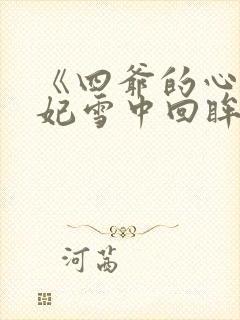 《四爷的心
妃雪中回眸
河茜